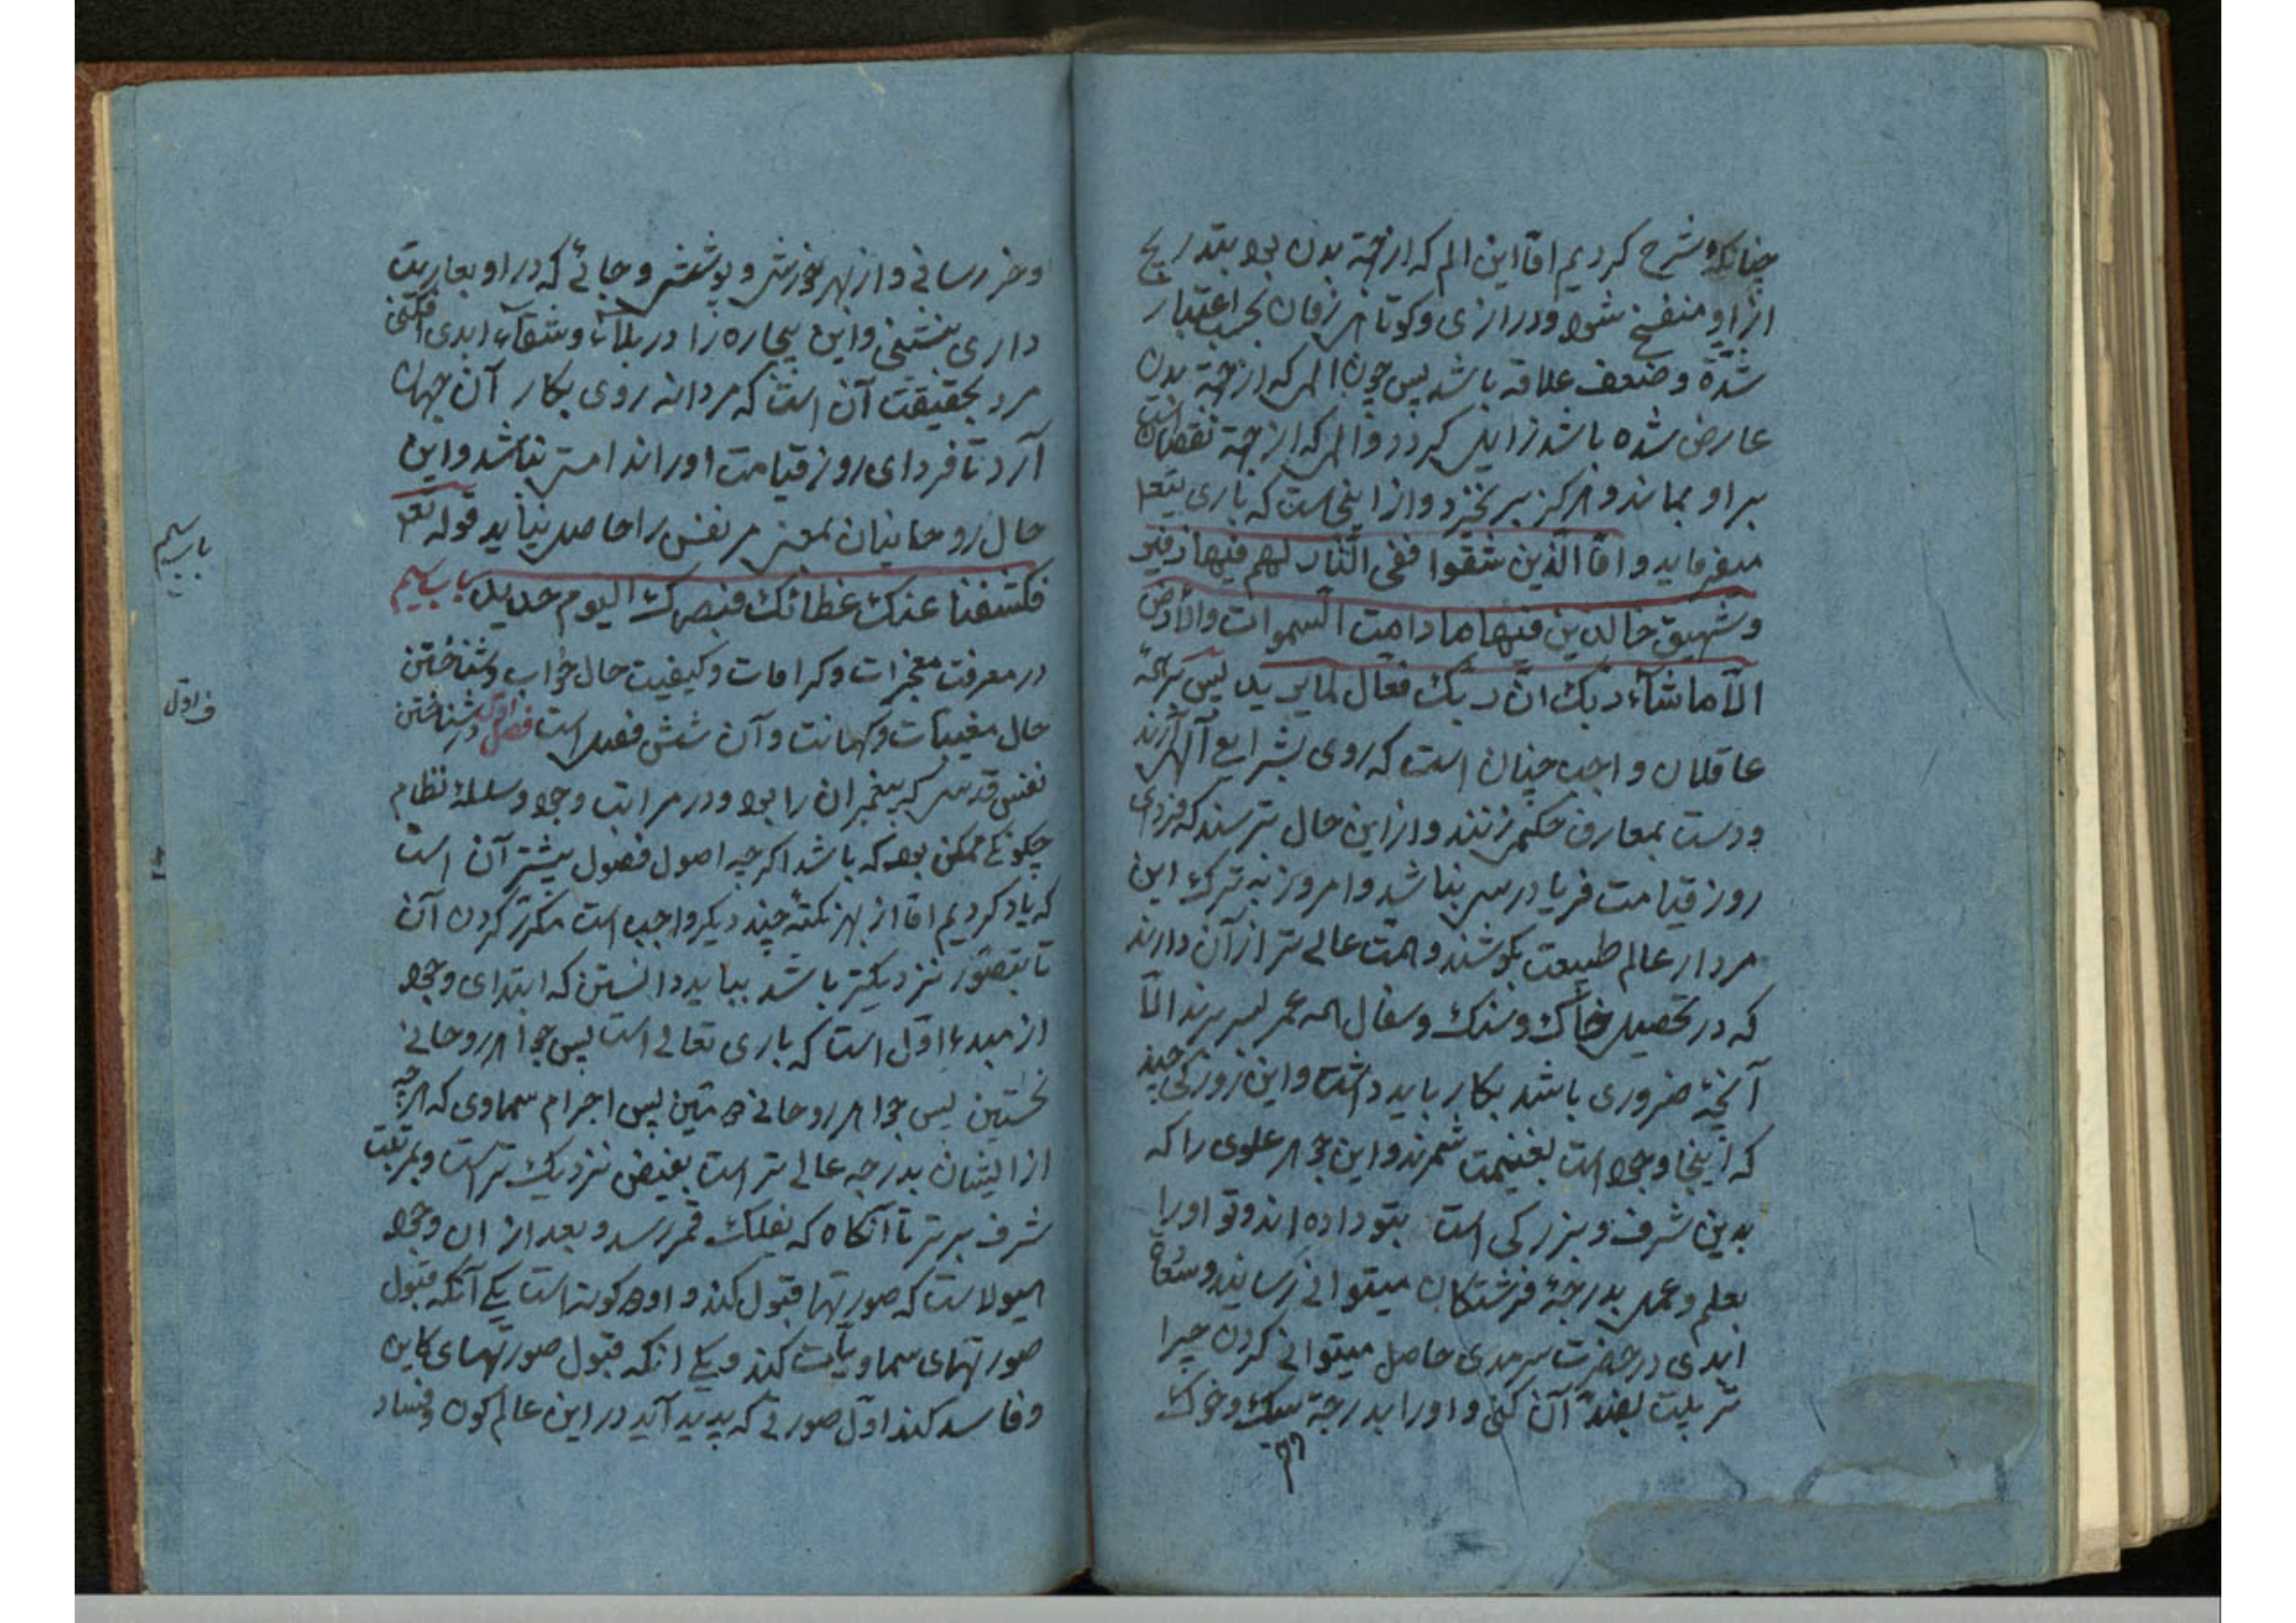 چنانکه شرح کردیم امّا این الم که از جهة بدن بود بتدریج
از او منفسخ شود و درازی و کوتاهی زمان بحسب اعتبار
شدّة و ضعف علاقه باشد پس چون المی که از جهة بدن
عارض شده باشد زایل کردد و المی که از جهة نقصان است
بر او بماند و هرکز برنخیزد و از اینجاست که باری تعم
میفرماید و امّا الّذین شقوا ففی النّار لهم فیها زفیر
و شهیق خالدین فیها ما دامت السموات والأرض
الّا ما شآء ربک انّ ربک فعّال لما یرید پس بر همه
عاقلان واجب چنان است که روی بشرایع آلهی آرند
و دست بمعارف حکمی زنند و از این حال ترسند که فردای
روز قیامت فریادرسی نباشد و امروز به ترک این
مردار عالم طبیعت بکوشند و همّت عالی تر از آن دارند
که در تحصیل خاک و سنک و سفال همه عمر بسر برند الّا
آنچه ضروری باشد بکار باید داشت و این روزکی چند
که اینجا وجود است بغنیمت شمرند و این جوهر علوی را که
بدین شرف و بزرکی است بتو داده اند و تو او را
بعلم و عمل بدرجهٔ فرشتکان میتوانی رسانید و سعادة
ابدی در حضرت سرمدی حاصل میتوانی کردن چرا
تربیت بضدّ آن کنی و او را بدرجهٔ سک و خوک
و خر رسانی و از بهر خورش و پوشش و جائی که در او بعاریت
داری بنشینی و این بیچاره را در بلاء و شقآء ابدی افکنی
مرد بحقیقت آن است که مردانه روی بکار آن جهان
آرد تا فردای روز قیامت او را ندامتی نباشد و این
حال روحانیان بمعنی مر نفس را حاصل نیاید قوله تعم
فکشفنا عنک غطائک فبصرک الیوم حدید باب سیم
در معرفت معجزات و کرامات و کیفیت حال خواب و شناختن
حال مغیبات و کهانت و آن شش فصل است فصل اوّل در شناختن
نفس قدسی که پیغمبران را بود و در مراتب وجود و سلسلهٔ نظام
چکونه ممکن بود که باشد اکرچه اصول فصول بیشتر آن است
که یاد کردیم امّا از بهر نکتهٔ چند دیکر واجب است مکرّر کردن آن
تا بتصوّر نزدیکتر باشد بباید دانستن که ابتدای وجود
از مبدء اوّل است که باری تعالی است پس جواهر روحانی
نخستین پس جواهر روحانی دومین پس اجرام سماوی که هرچه
از ایشان بدرجه عالی تر است بفیض نزدیک تر است و بمرتبت
شرف برتر تا آنکاه که بفلک قمر رسد و بعد از ان وجود
هیولاست که صورتها قبول کند و او دو کونه است یکی آنکه قبول
صورتهای سماویات کند و یکی انکه قبول صورتهای کاین
و فاسد کند اوّل صورتی که پدید آید در این عالم کون و فساد
باب سیم
ف اوّل